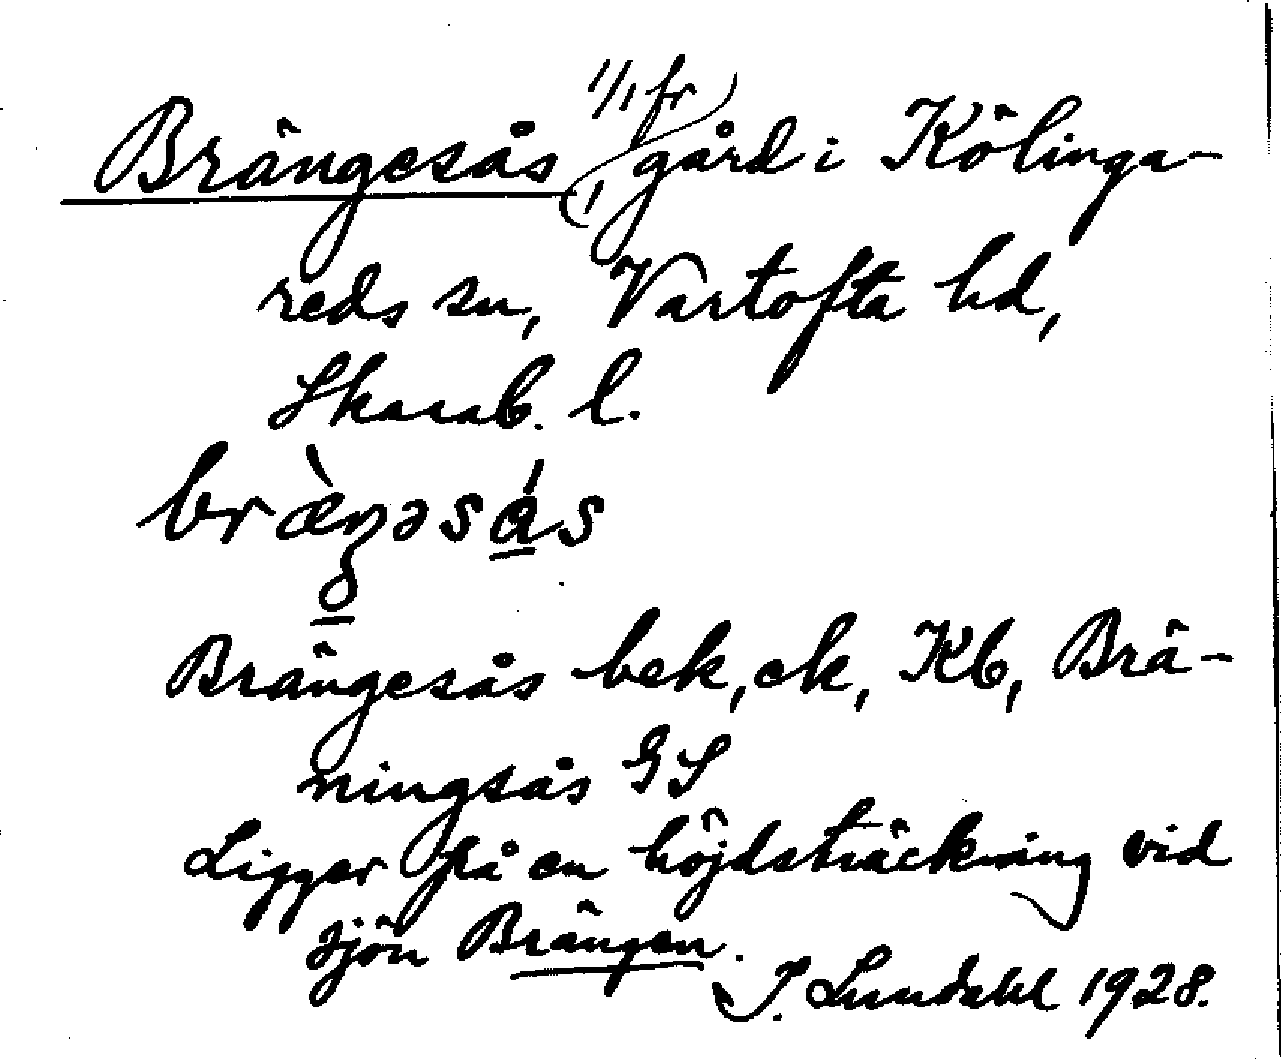 Brängesås, 1/1 fr gård i Kölinga-
reds sn, Vartofta hd,
Skarab. l.
bræ̀ŋəsás
Brängesås bek, ek, Kb, Brä-
ningsås GS
Ligger på en höjdsträckning vid
sjön Brängen.
I. Lundahl 1928.